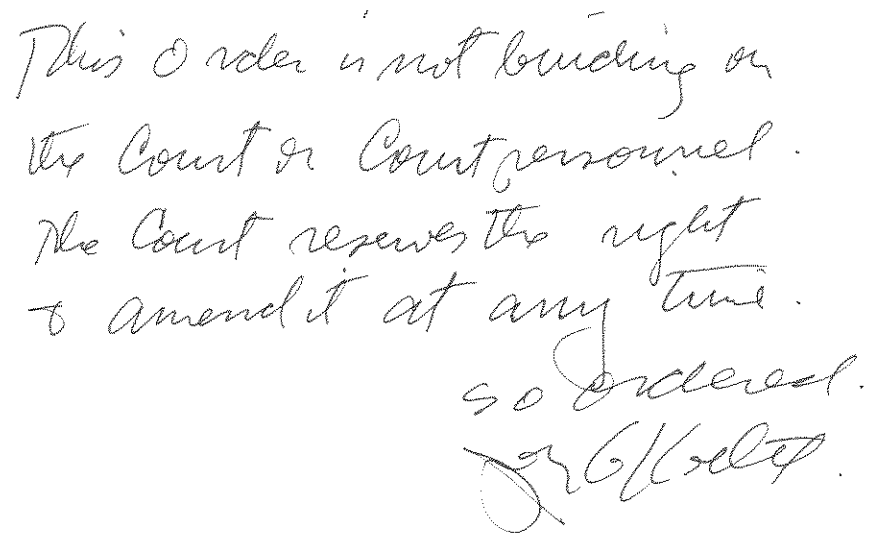 This Order is not binding on
the Court or Court personnel.
The Court reserves the right
to amend it at any time.
So ordered.
John G Koeltl.